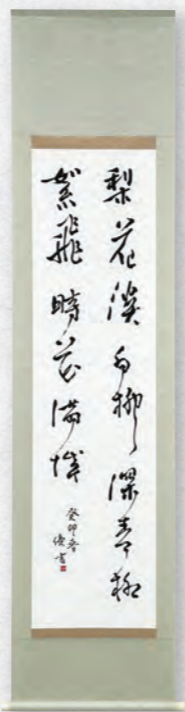 梨花淡白柳深青柳
絮飛時花滿城
癸卯春
書